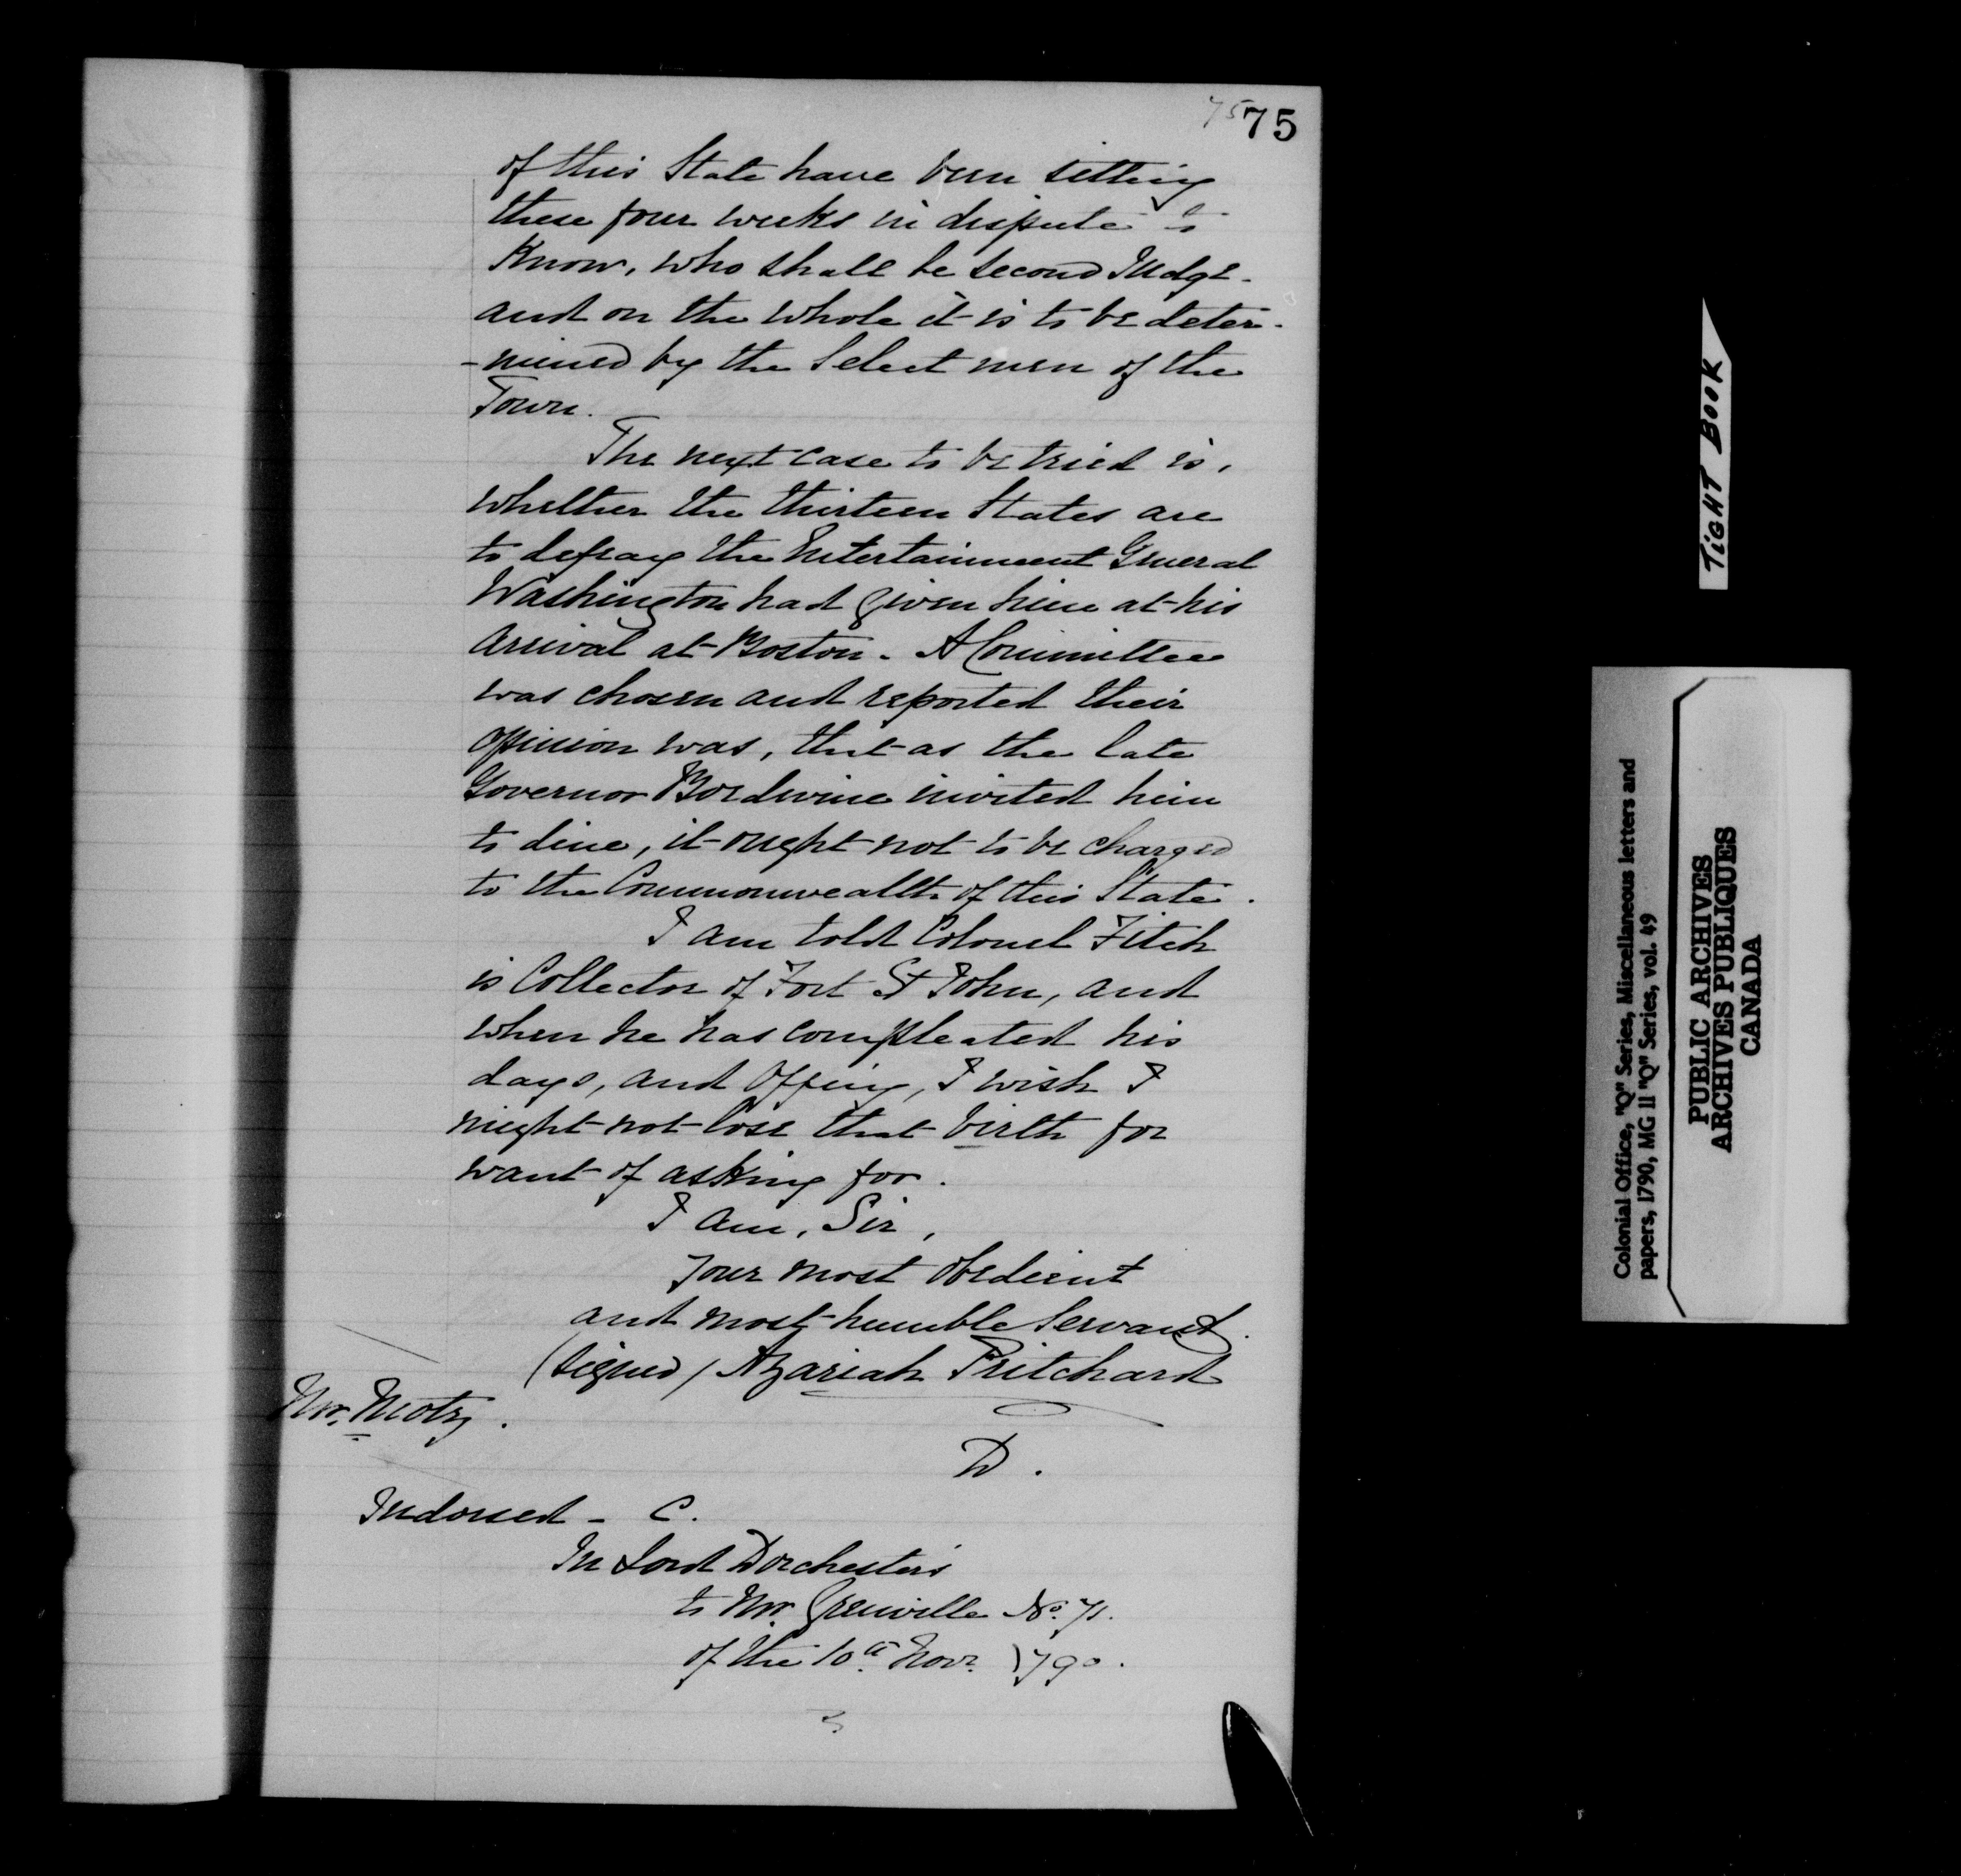 75 75
of this State have been sitting
these four weeks in dispute to
Know, who shall be second Judge -
and on the whole it is to be deter-
-mined by the Select men of the
Town.
The next case to be tried is,
whether the thirteen States are
to defray the Entertainment General
Washington had given him at his
arrival at Boston. A Committee
was chosen and reported their
opinion was, that as the late
Governor Bordwine invited him
to dine, it ought not to be charged
to the Commonwealth of this State.
I am told Colonel Fitch
is Collector of Fort St John, and
when he has compleated his
days, and Offing, I wish I
might not lose that birth for
want of asking for.
I am, Sir,
Your most obedient
and most humble Servant.
(signed) Azariah Pritchard
Mr. Motz.
D.
Indorsed - C.
In Lord Dorchester's
to Mr. Grenville No. 71.
of the 10th Novr. 1790.
TIGHT BOOK
Colonial Office, "Q" Series, Miscellaneous letters and
papers, 1790, MG 11 "Q" Series, vol. 49
PUBLIC ARCHIVES
ARCHIVES PUBLIQUES
CANADA